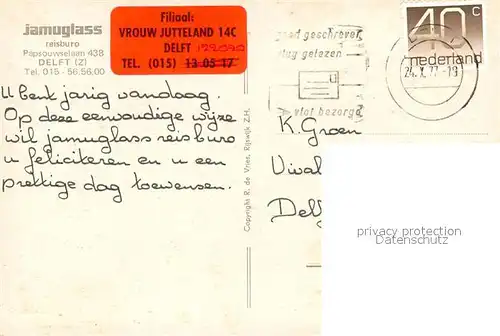 jamuglass
reisburo
Papsouwselaan 438
DELFT (Z)
Tel. 015 - 56.56.00
Filiaal:
VROUW JUTTELAND 14C
DELFT
TEL. (015) 13 05 17
goed geschreven
vlug gelezen
vlot bezorgd
40c
nederland
U bent jarig vandaag.
Op deze eenvoudige wijze
wil jamuglass reisburo
u feliciteren en u een
prettige dag toewensen.
Copyright R. de Vries, Rijswijk Z.H.
K. Groen
privacy protection
Datenschutz